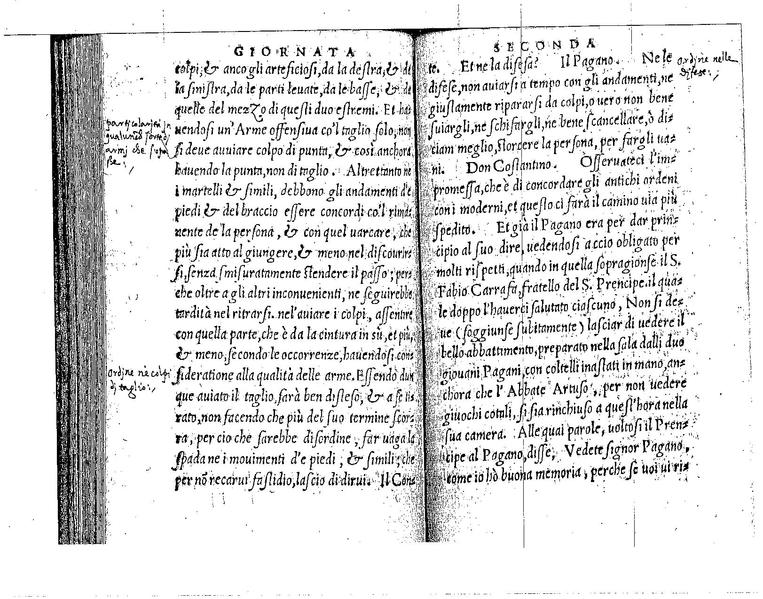 GIORNATA
colpi; & anco gli arteficiosi, da la destra, & da
la sinistra, da le parti leuate, da le basse, & da
quelle del mezzo di questi duo estremi. Et ha
uendosi un'Arme offensiua co'l taglio solo, non
si deue auuiare colpo di punta, & così anchora,
hauendo la punta, non di taglio. Altrettanto ne
i martelli & simili, debbono gli andamenti de
piedi & del braccio essere concordi co'l rima
nente de la persona, & con quel uarcare, che
più sia atto al giungere, & meno nel discourir
si, senza smisuratamente stendere il passo; per
che oltre a gli altri inconuenienti, ne seguirebbe
tardità nel ritrarsi. nel'auiare i colpi, assentire
con quella parte, che è da la cintura in sù, et più,
& meno, secondo le occorrenze, hauendosi con
sideratione alla qualità delle arme. Essendo dun
que auiato il taglio, farà ben disteso, & a se ti
rato, non facendo che più del suo termine scor
ra, per cio che sarebbe disordine, far uaga la
spada ne i mouimenti d'e piedi, & simili; che
per nõ recarui fastidio, lascio di dirui. Il Con
particolarità in
qualunque sorte
armi che si
ordine ne colpi
di taglio:,
SECONDA
te. Et ne la difesa? Il Pagano. Ne le
difese, non auiarsi a tempo con gli andamenti, ne
giustamente ripararsi da colpi, o uero non bene
suiargli, ne schifargli, ne bene scancellare, ò di
ciam meglio, storcere la persona, per fargli ua
ni. Don Costantino. Osseruateci l'im
promessa, che è di concordare gli antichi ordeni
con i moderni, et questo ci farà il camino uia più
spedito. Et già il Pagano era per dar prin
cipio al suo dire, uedendosi a ccio obligato per
molti rispetti, quando in quella sopragionse il S.
Fabio Carrafa, fratello del S. Prencipe. il qua
le doppo l'hauerci salutato ciascuno, Non si de
ue (soggiunse subitamente) lasciar di uedere il
bello abbattimento, preparato nella sala dalli duo
giouani Pagani, con coltelli inastati in mano, an
chora che l'Abbate Artuso, per non uedere
giuochi cotali, si sia rinchiuso a quest'hora nella
sua camera. Alle quai parole, uoltosi il Pren
cipe al Pagano, disse, Vedete signor Pagano,
come io hò buona memoria, perche se uoi ui ri
ordine nelle
difese:,